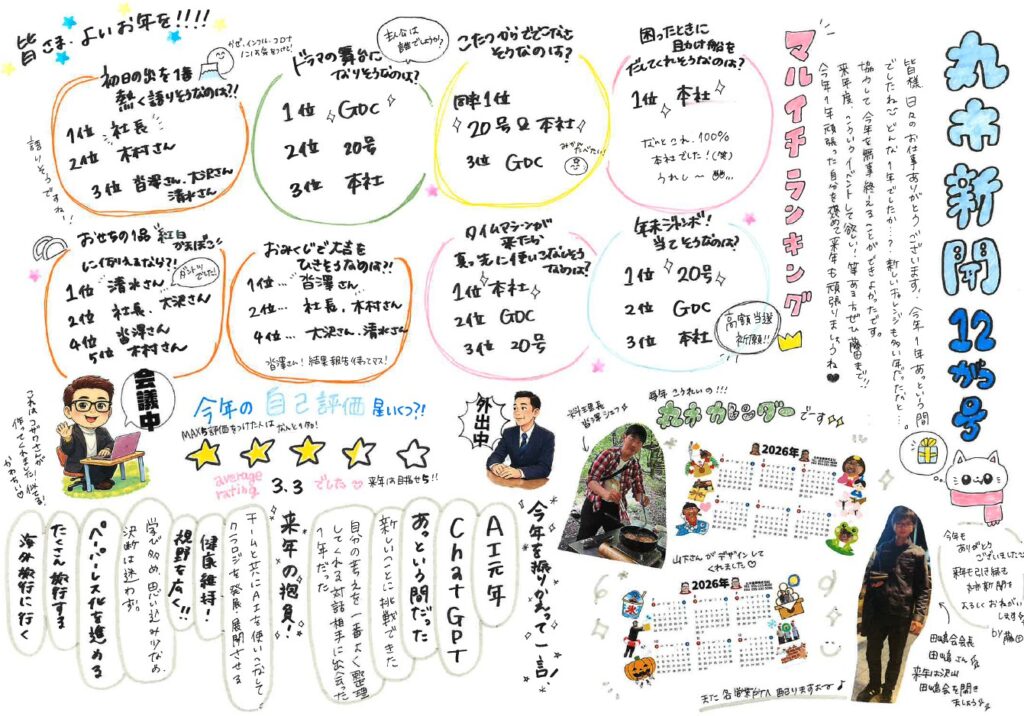 丸市新聞
12がつ号
皆様、日々のお仕事ありがとうございます。今年1年あっという間
でしたね どんな1年でしたか…？新しいチャレンジも多い年だったなと…
協力して今年も無事終えることができよかったです。
来年度、こういうイベントして欲しい！等あればぜひ藤田まで!!
今年1年頑張った自分を褒めて来年も頑張りましょうね♥
マルイチランキング
困ったときに
助け船を
だしてくれそうなのは？
1位 本社
なんとこれ、100%
本社でした！(笑)
うれし〜
こたつからでてこなさ
そうなのは？
同率1位
20号&本社
3位 GDC
みかんたべたい！
ドラマの舞台に
なりそうなのは？
主人公は
誰でしょうか？
1位 GDC
2位 20号
3位 本社
初日の出を1番
熱く語りそうなのは?!
1位 社長
2位 木村さん
3位 當澤さん、大沢さん
清水さん
語りそうですね！
皆さま、よいお年を!!!!
かぜ、インフル、コロナ
には気をつけて！
年末ジャンボ！
当てそうなのは？
1位 20号
2位 GDC
3位 本社
高額当選
祈願!!
タイムマシーンが
来たら
真っ先に使いこなしそう
なのは？
1位 本社
2位 GDC
3位 20号
おみくじで大吉を
ひきそうなのは?!
1位… 當澤さん
2位… 社長、木村さん
4位… 大沢さん、清水さん
當澤さん！結果報告待ってマス！
おせちの1品
に例えるなら?!
紅白
かまぼこ
1位 清水さん
ダントツでした！
2位 社長、大沢さん
4位 當澤さん
5位 木村さん
会議中
これはコザワさんが
作ってくれました！似てる！
かわいい♡
今年の自己評価 星いくつ?!
MAX5評価をつけた人は なんと1名！
average
rating
3.3 でした 来年は目指せ5!!
外出中
今年を振りかえって一言！
AI元年
ChatGPT
あっという間だった
新しいことに挑戦できた
自分の考えを一番よく整理
してくれる対話相手に出会った
1年だった
来年の抱負！
チームと共にAIを使いこなして
クラロジを発展・展開させる
健康維持！
視野を広く!!
学び多め、思い込み少なめ、
決断は迷わず。
ペーパーレス化を進める
たくさん旅行する
海外旅行に行く
毎年こうれいの!!!
丸市カレンダーです
料理長
當澤シェフ
2026年
山下さんがデザインして
くれました♡
2026年
また各営業所へ配りますね〜♪
今年も
ありがとう
ございました
来年も引き続き
丸市新聞を
よろしくおねがい
します
by 藤田
田嶋会会長
田嶋さん
来年は沢山
田嶋会を開き
ましょう